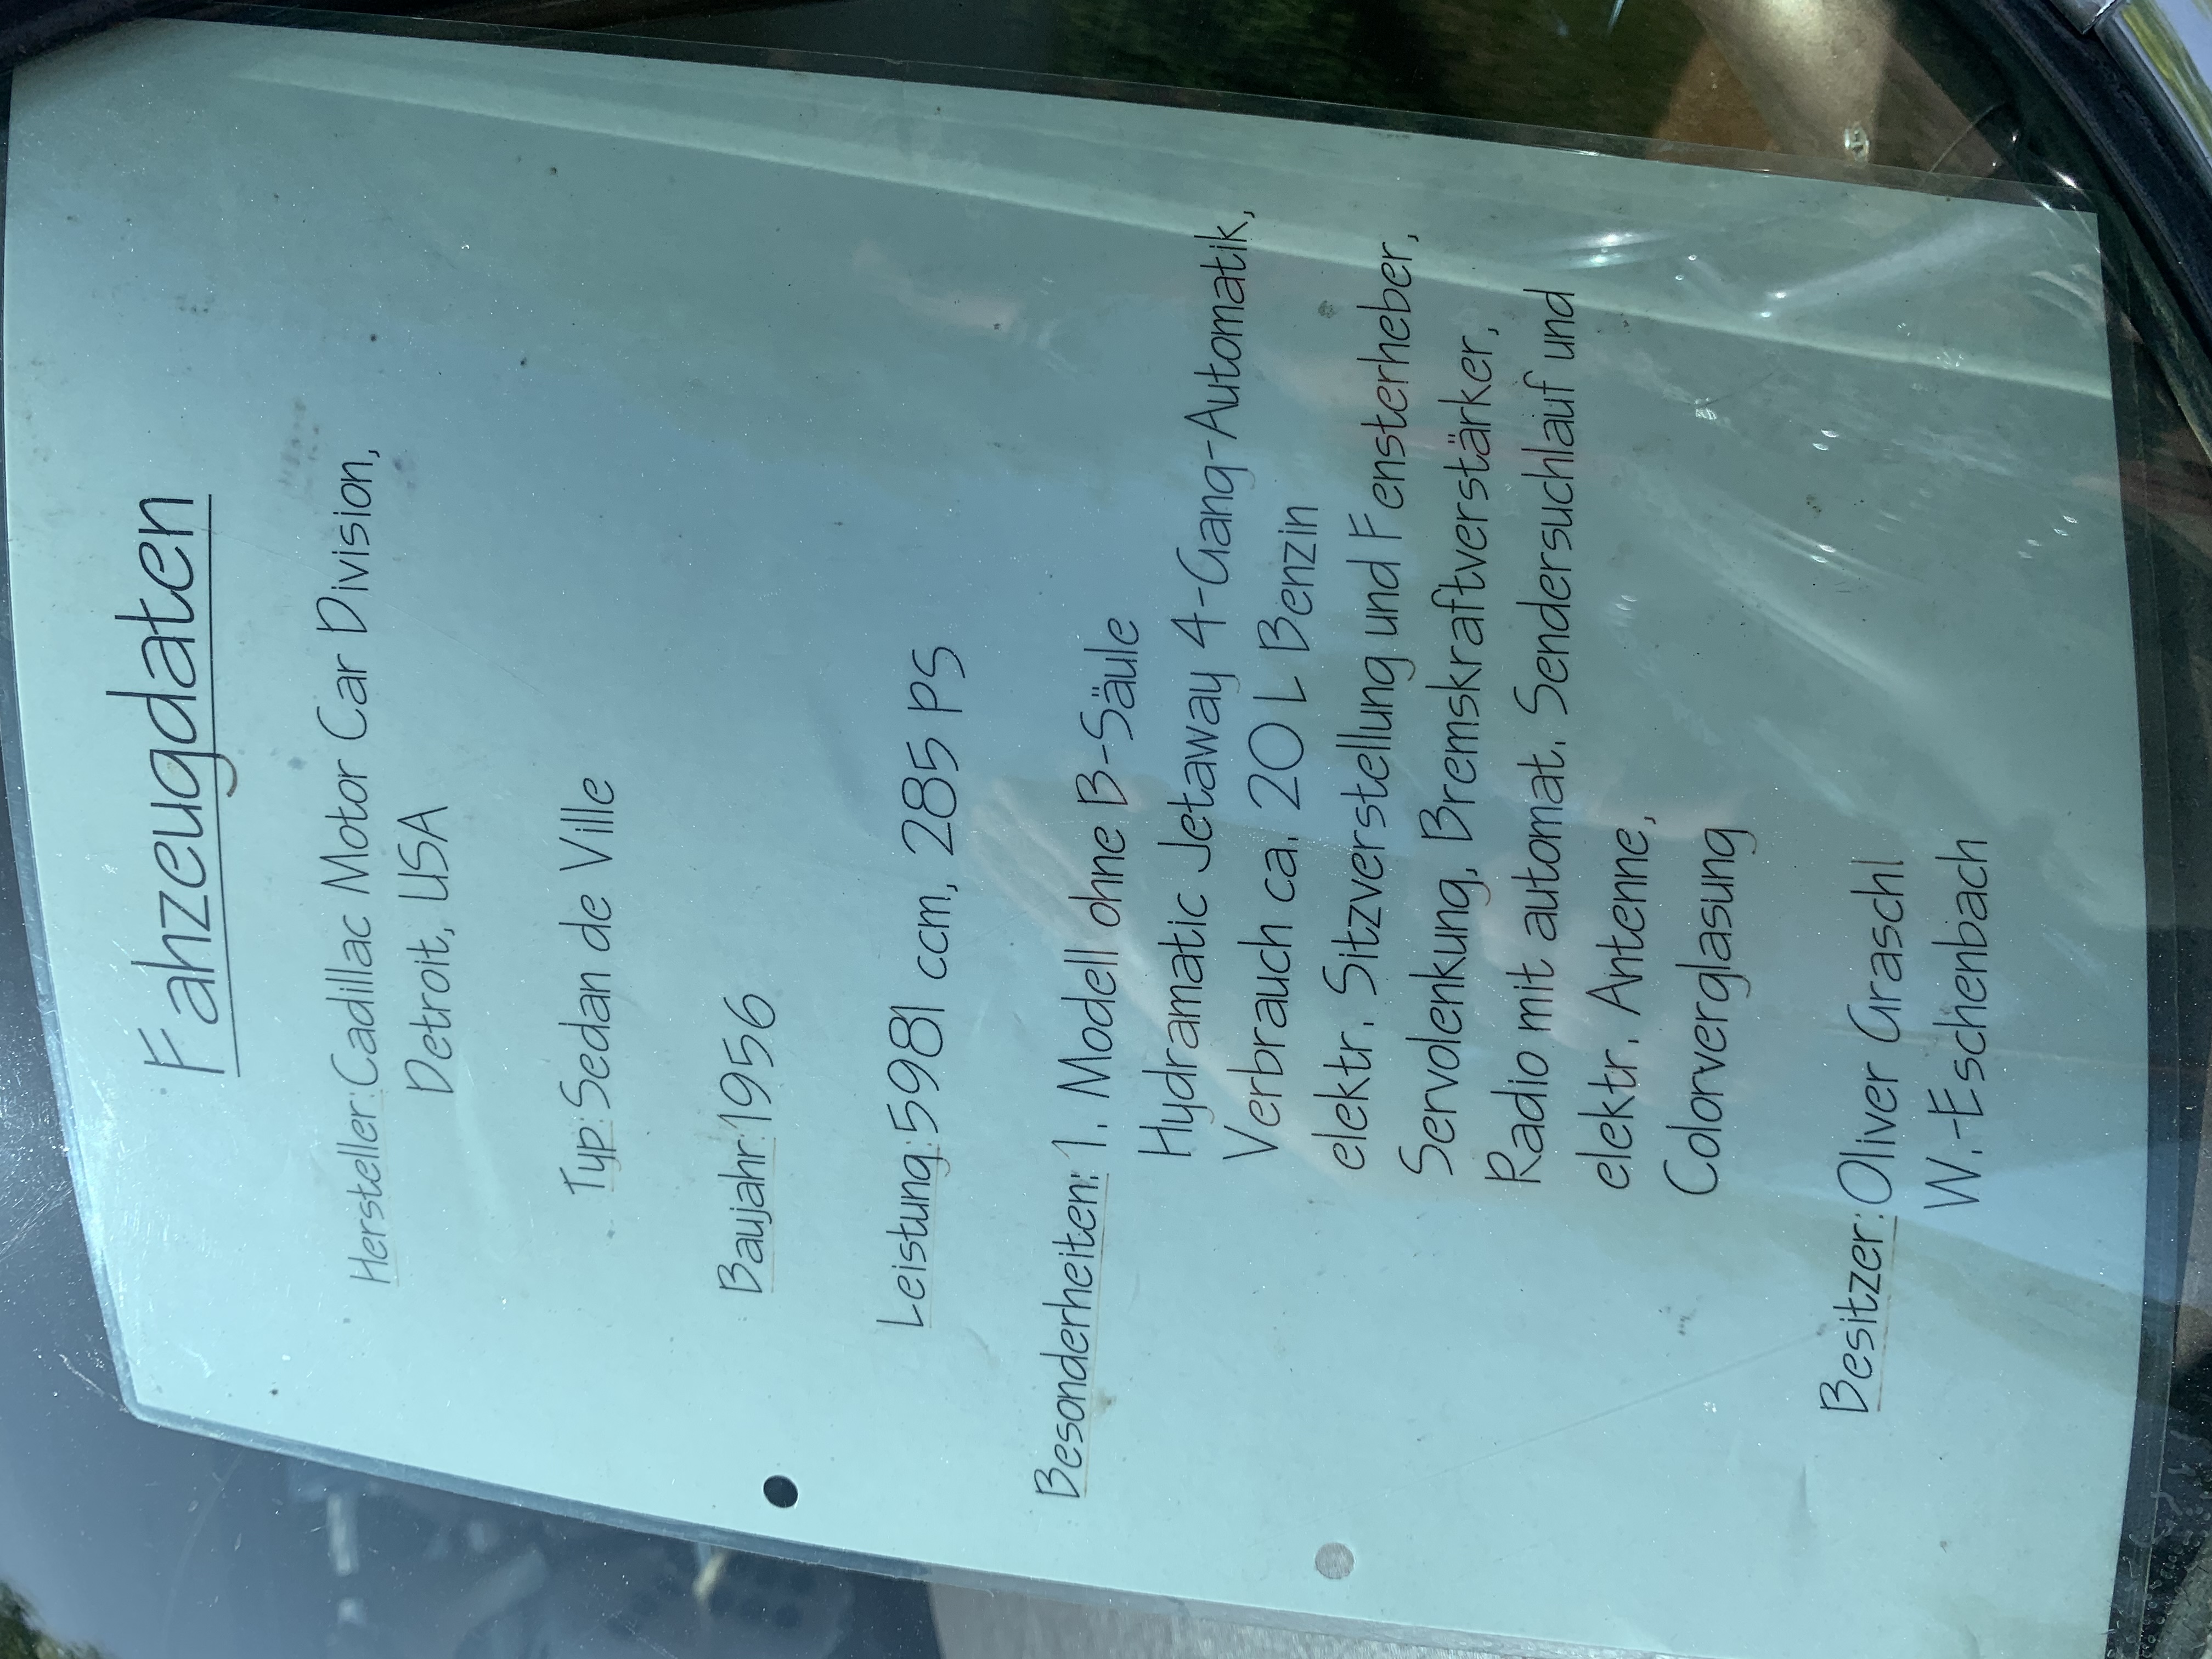 Fahrzeugdaten
Hersteller: Cadillac Motor Car Division,
Detroit, USA
Typ: Sedan de Ville
Baujahr: 1956
Leistung: 5981 ccm, 285 PS
Besonderheiten: 1. Modell ohne B-Säule
Hydramatic Jetaway 4-Gang-Automatik,
Verbrauch ca. 20 L Benzin
elektr. Sitzverstellung und Fensterheber,
Servolenkung, Bremskraftverstärker,
Radio mit automat. Sendersuchlauf und
elektr. Antenne,
Colorverglasung
Besitzer: Oliver Graschl
W.-Eschenbach